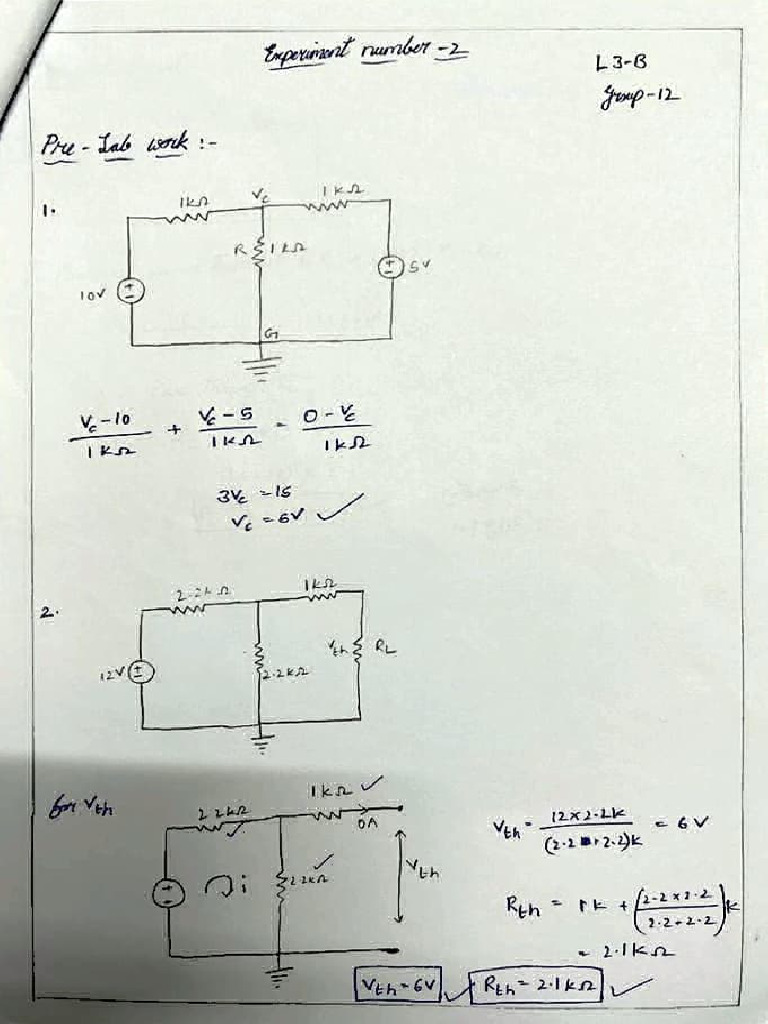 Experiment number - 2
L3-B
Group-12
Pre-Lab work :-
1.
1kΩ
Vc
1kΩ
R
1kΩ
10V
5V
G
(Vc-10)/1kΩ + (Vc-5)/1kΩ = (0-Vc)/1kΩ
3Vc = 15
Vc = 5V ✓
2.
2.2kΩ
1kΩ
12V
2.2kΩ
Vth
RL
for Vth
2.2kΩ ✓
1kΩ ✓
0A
i
2.2kΩ ✓
Vth
Vth = (12×2.2k)/((2.2+2.2)k) = 6V
Rth = 1k + ((2.2×2.2)/(2.2+2.2))k
= 2.1kΩ
Vth = 6V ✓ Rth = 2.1kΩ ✓